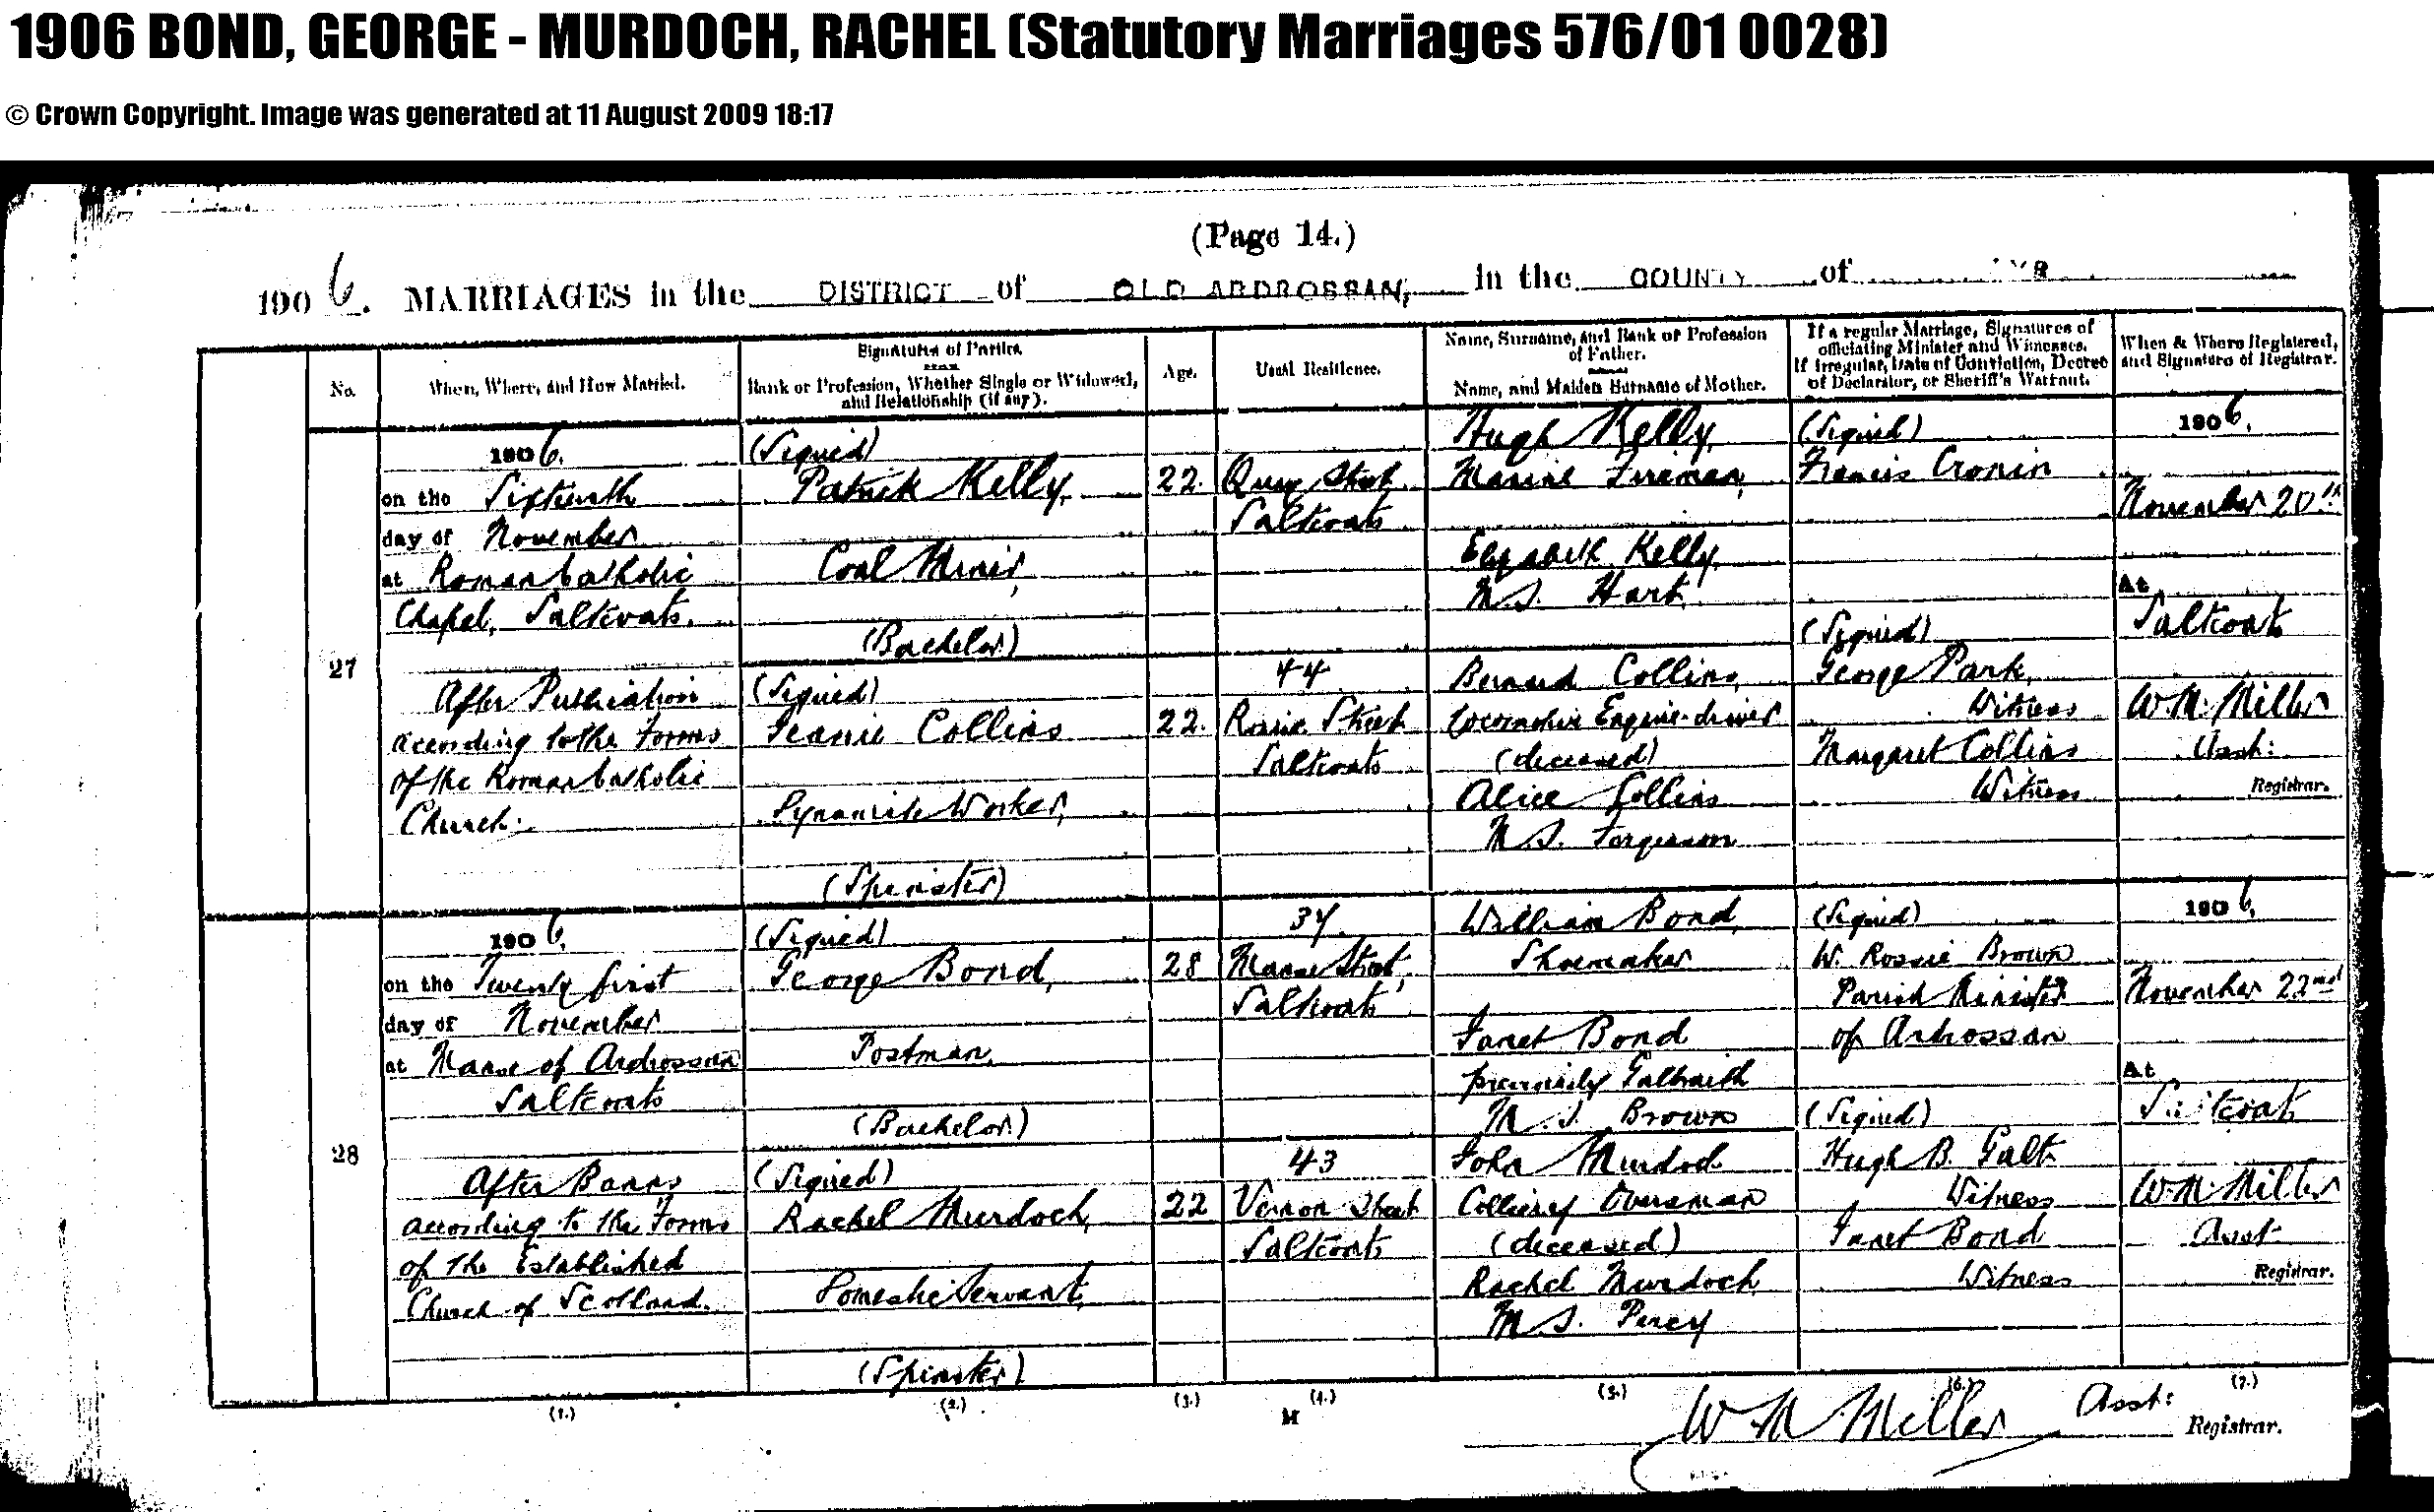 1906 BOND, GEORGE - MURDOCH, RACHEL (Statutory Marriages 576/01 0028)
© Crown Copyright. Image was generated at 11 August 2009 18:17
(Page 14.)
1906. MARRIAGES in the DISTRICT of OLD ARDROSSAN, in the COUNTY of YR
No.
When, Where, and How Married.
Signatures of Parties.
Rank or Profession, Whether Single or Widowed, and Relationship (if any).
Age.
Usual Residence.
Name, Surname, and Rank or Profession of Father.
Name, and Maiden Surname of Mother.
If a regular Marriage, Signatures of officiating Minister and Witnesses.
If irregular, Date of Conviction, Decree of Declarator, or Sheriff's Warrant.
When & Where Registered, and Signature of Registrar.
27
1906.
on the Sixteenth
day of November
at Roman Catholic
Chapel, Saltcoats.
After Publication
according to the Forms
of the Roman Catholic
Church.
(Signed)
Patrick Kelly.
Coal Miner,
(Bachelor)
(Signed)
Jeanie Collins
Dynamite Worker,
(Spinster)
22.
22.
Quay Street
Saltcoats
44
Raise Street
Saltcoats
Hugh Kelly,
Marine Fireman,
Elizabeth Kelly
M.S. Hart
Bernard Collins,
Locomotive Engine-driver
(deceased)
Alice Collins
M.S. Ferguson
(Signed)
Francis Cronin
(Signed)
George Park,
Witness
Margaret Collins
Witness
1906.
November 20th
At
Saltcoats
W.M. Miller
Asst:
Registrar.
28
1906.
on the Twenty first
day of November
at Manse of Ardrossan
Saltcoats
After Banns
according to the Forms
of the Established
Church of Scotland.
(Signed)
George Bond,
Postman,
(Bachelor)
(Signed)
Rachel Murdoch,
Domestic Servant,
(Spinster)
28
22
37.
Manse Street,
Saltcoats
43
Vernon Street
Saltcoats
William Bond,
Shoemaker
Janet Bond
previously Galbraith
M.S. Brown
John Murdoch
Colliery Oversman
(deceased)
Rachel Murdoch
M.S. Percy
(Signed)
W. Rossie Brown
Parish Minister
of Ardrossan
(Signed)
Hugh B. Galt
Witness
Janet Bond
Witness
1906.
November 22nd
At
Saltcoats
W.M. Miller
Asst.
Registrar.
(1.) (2.) (3.) (4.) (5.) (6.) (7.)
M
W M Miller Asst: Registrar.